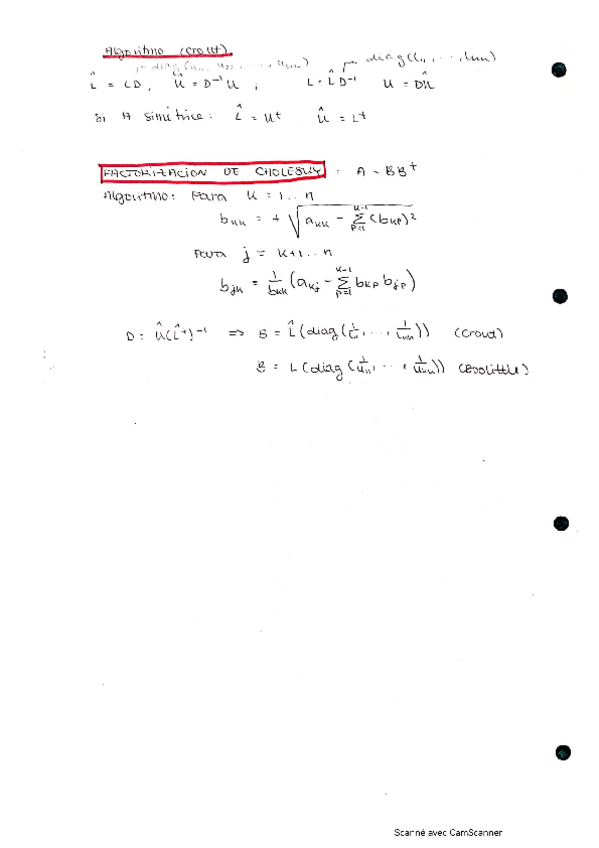 Algoritmo (Crout)
diag(u₁₁, u₂₂, ..., uₙₙ) diag(l₁₁, ..., lₙₙ)
L̂ = LD, Û = D⁻¹U ; L = L̂D⁻¹ U = DÛ
Si A simétrica: L̂ = Uᵗ Û = Lᵗ
FACTORIZACION DE CHOLESKY : A = BBᵗ
Algoritmo: Para k = 1..n
bₖₖ = + √(aₖₖ - Σₚ₌₁ᵏ⁻¹ (bₖₚ)²)
Para j = k+1..n
bⱼₖ = 1/bₖₖ (aₖⱼ - Σₚ₌₁ᵏ⁻¹ bₖₚ bⱼₚ)
D = Û(L̂ᵗ)⁻¹ => B = L̂(diag(1/l₁₁, ..., 1/lₙₙ)) (Crout)
B = L(diag(1/u₁₁, ..., 1/uₙₙ)) (Doolittle)
Scanné avec CamScanner